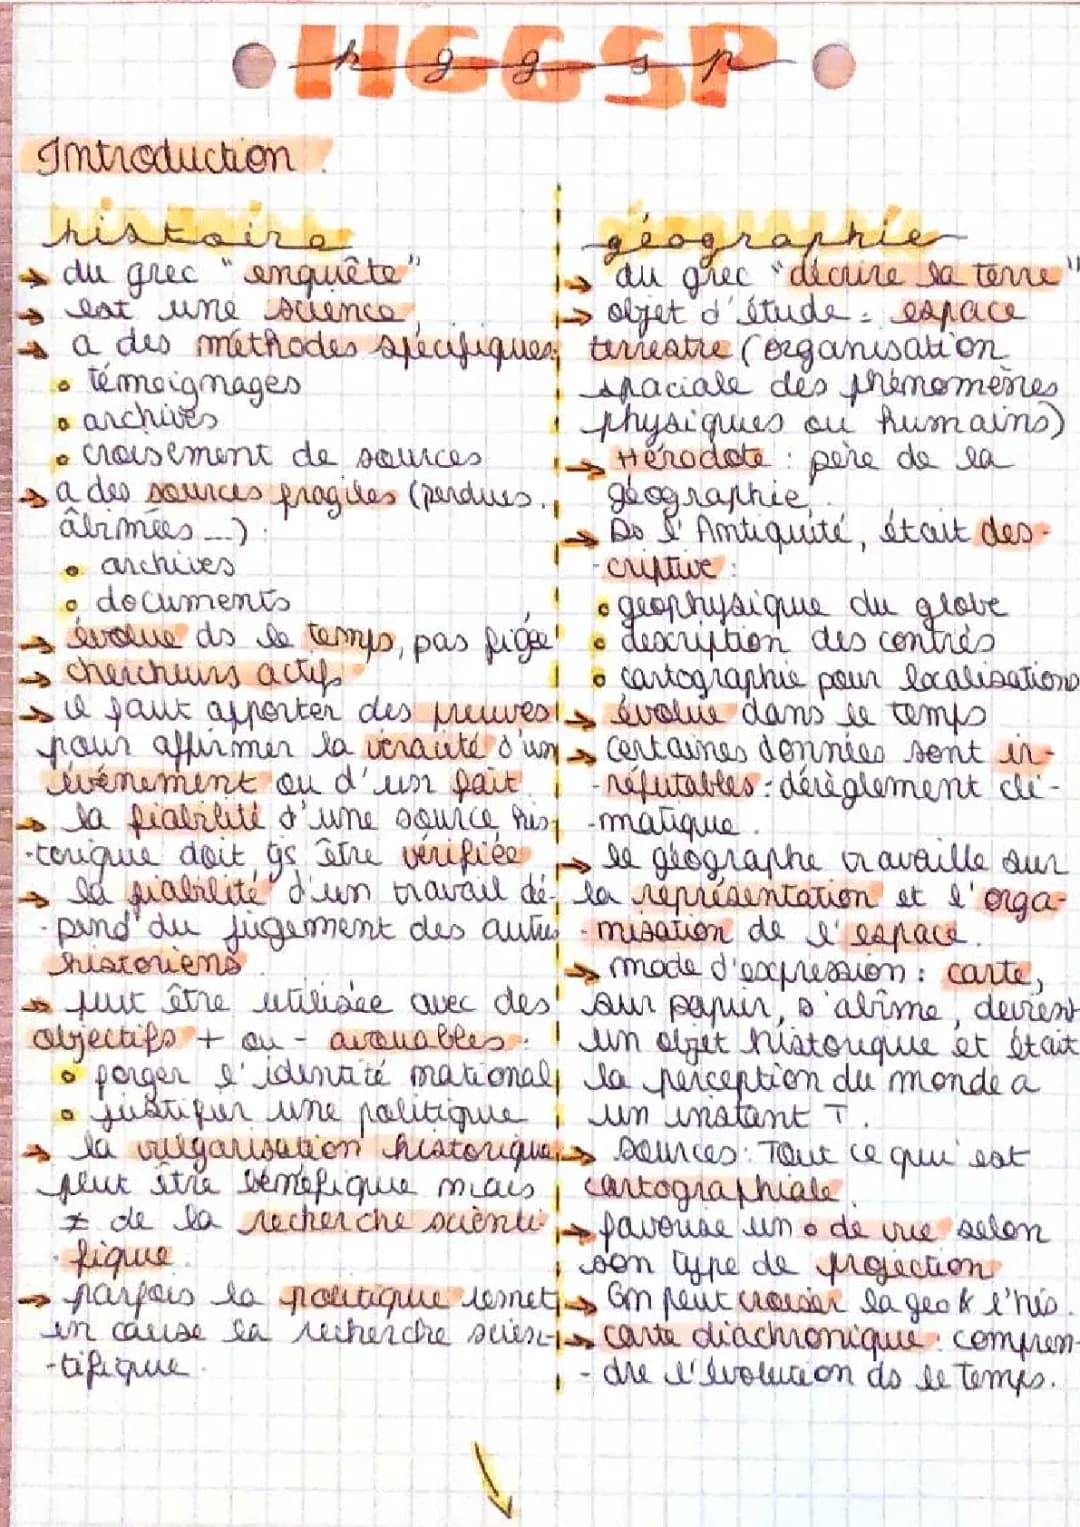 HGGSP
h g g s p
Introduction.
histoire
→ du grec "enquête"
→ est une science
→ a des méthodes spécifiques:
• témoignages
• archives
• croisement de sources
→ a des sources fragiles (perdues,
âbimées ...) :
• archives
• documents
→ évolue ds le temps, pas figée!
→ chercheurs actifs
→ il faut apporter des preuves
pour affirmer la véracité d'un
événement ou d'un fait.
→ la fiabilité d'une source his-
-torique doit tjs être vérifiée
→ la fiabilité d'un travail dé-
-pend du jugement des autres
historiens.
→ peut être utilisée avec des
objectifs + ou - avouables :
• forger l'identité national
• justifier une politique
→ la vulgarisation historique
peut être bénéfique mais
≠ de la recherche scienti-
-fique.
→ parfois la politique remet
en cause la recherche scien-
-tifique.
géographie
→ du grec "décrire la terre"
→ objet d'étude = espace
terrestre (organisation
spaciale des phénomènes
physiques ou humains)
→ Hérodote : père de la
géographie.
→ Ds l'Antiquité, était des-
-criptive :
• géophysique du globe
• description des contrés
• cartographie pour localisations
→ évolue dans le temps
→ certaines données sont ir-
-réfutables : dérèglement cli-
-matique.
→ le géographe travaille sur
la représentation et l'orga-
-nisation de l'espace.
→ mode d'expression : carte,
sur papier, s'abîme, devient
un objet historique et était
la perception du monde a
un instant T.
→ sources: Tout ce qui est
cartographiale.
→ favorise un • de vue selon
son type de projection
→ On peut croiser la geo & l'his.
→ carte diachronique : compren-
-dre l'évolution ds le temps.